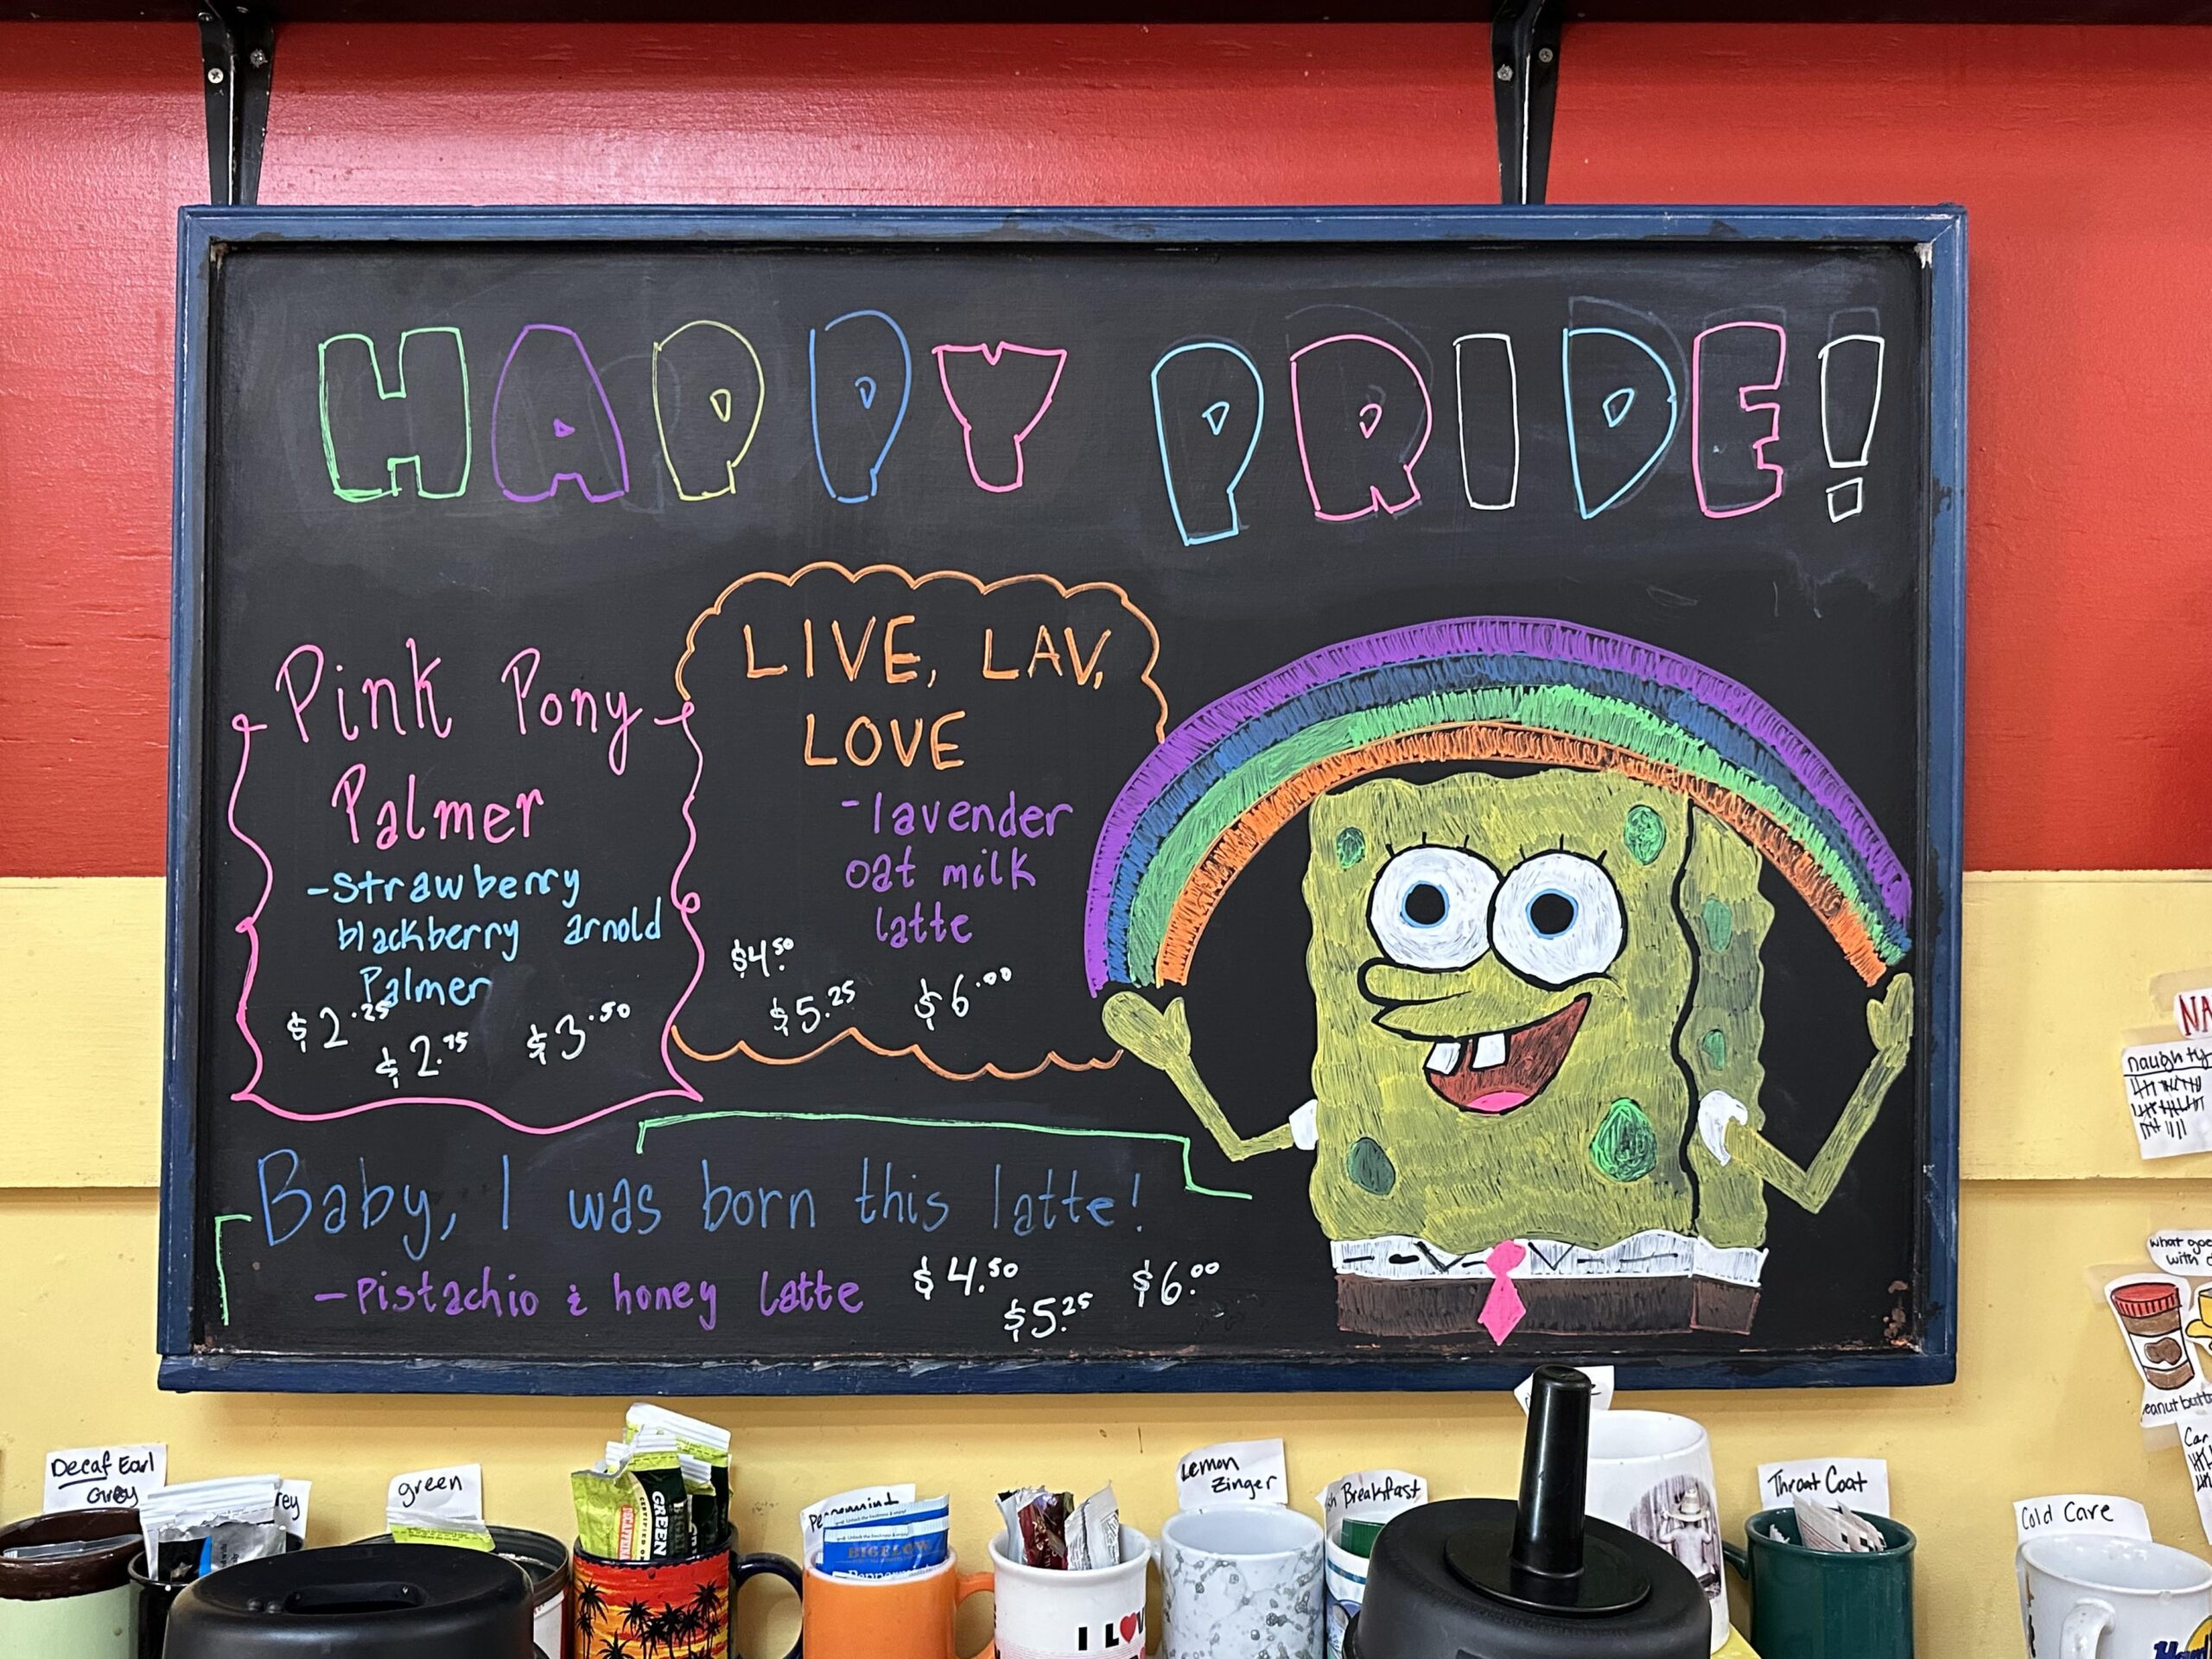 HAPPY PRIDE!
Pink Pony
Palmer
-strawberry
blackberry arnold
Palmer
$2.25
$2.75
$3.50
LIVE, LAV,
LOVE
-lavender
oat milk
latte
$4.50
$5.25
$6.00
Baby, I was born this latte!
-Pistachio & honey latte
$4.50
$5.25
$6.00
NA
naughty
what goe
with
eanut butt
Car
Decaf Earl
Grey
rey
green
GREEN
Peppermint
BIGELOW
I LOV
Lemon
Zinger
sh Breakfast
Throat Coat
Cold Care